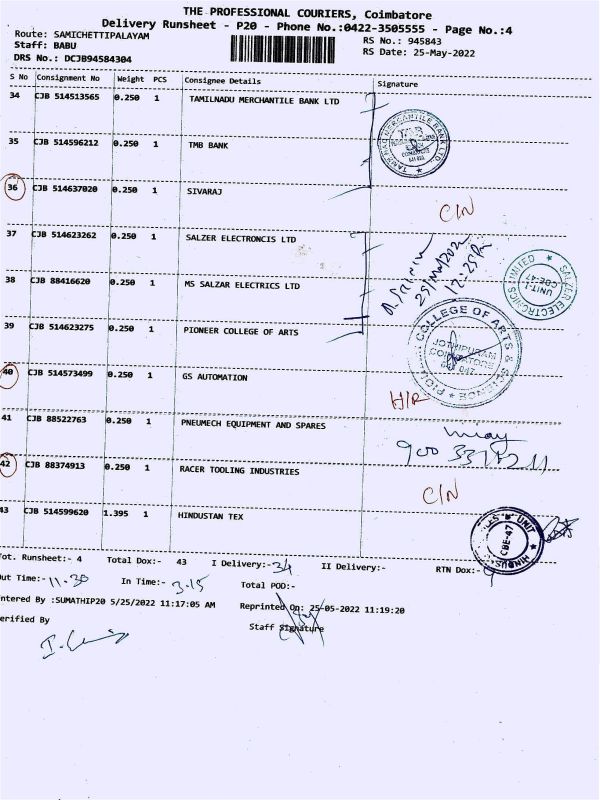 THE PROFESSIONAL COURIERS, Coimbatore
Delivery Runsheet - P20 - Phone No.:0422-3505555 - Page No.:4
Route: SAMICHETTIPALAYAM RS No.: 945843
Staff: BABU RS Date: 25-May-2022
DRS No.: DCJB94584304
S No Consignment No Weight PCS Consignee Details Signature
34 CJB 514513565 0.250 1 TAMILNADU MERCHANTILE BANK LTD
35 CJB 514596212 0.250 1 TMB BANK
36 CJB 514637020 0.250 1 SIVARAJ C/N
37 CJB 514623262 0.250 1 SALZER ELECTRONCIS LTD
25/May/2022
12:25 Pm
SALZER ELECTRONICS LIMITED
UNIT-I
CBE-47
38 CJB 88416620 0.250 1 MS SALZAR ELECTRICS LTD
39 CJB 514623275 0.250 1 PIONEER COLLEGE OF ARTS
COLLEGE OF ARTS &
JOTHIPURAM
COIMBATORE
40 CJB 514573499 0.250 1 GS AUTOMATION H/R
41 CJB 88522763 0.250 1 PNEUMECH EQUIPMENT AND SPARES
42 CJB 88374913 0.250 1 RACER TOOLING INDUSTRIES C/N
43 CJB 514599620 1.395 1 HINDUSTAN TEX
UNIT
CBE-47
Tot. Runsheet:- 4 Total Dox:- 43 I Delivery:-34 II Delivery:- RTN Dox:-9
Out Time:-11.30 In Time:- 3.15 Total POD:-
ntered By :SUMATHIP20 5/25/2022 11:17:05 AM Reprinted On: 25-05-2022 11:19:20
erified By Staff Signature